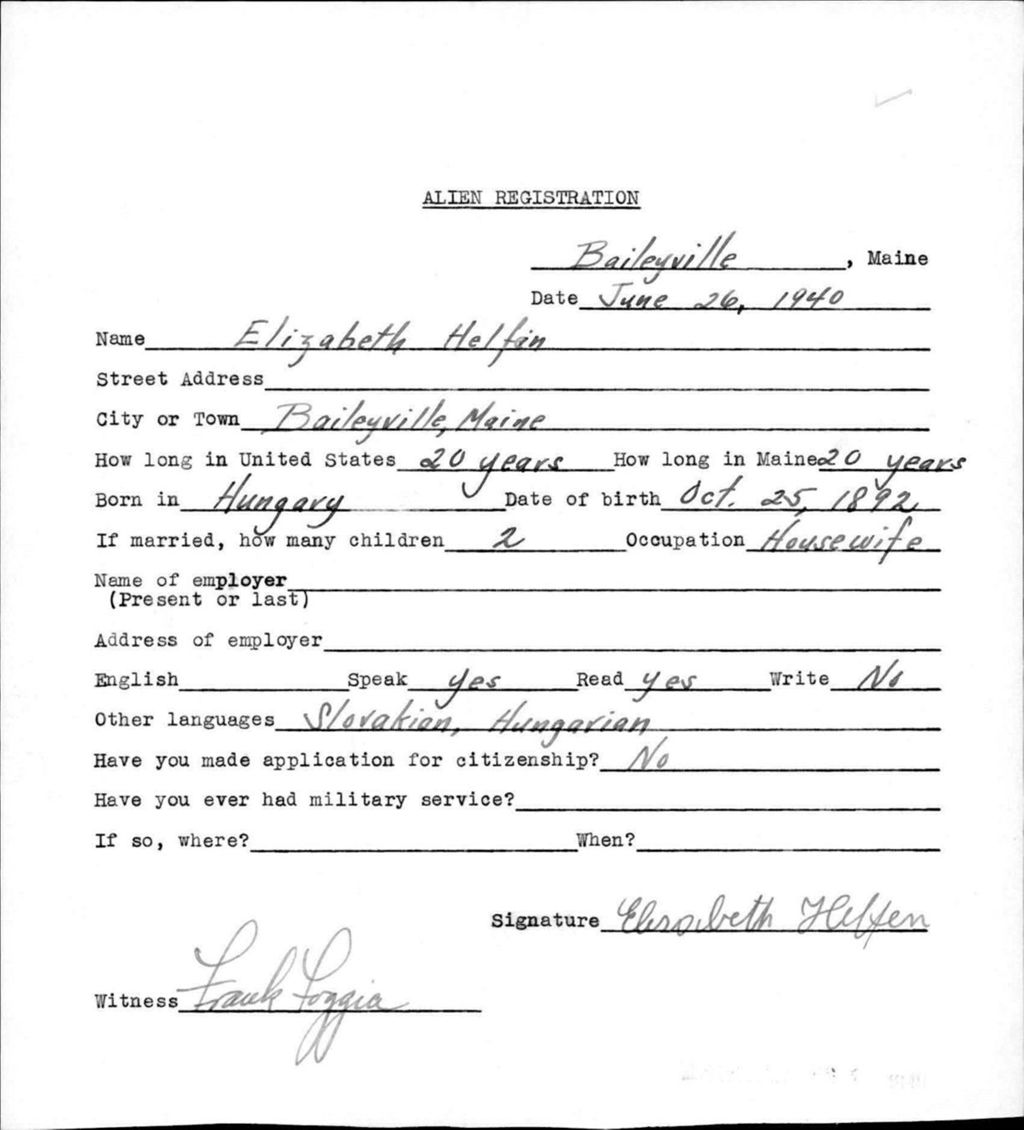 ALIEN REGISTRATION
Baileyville, Maine
Date June 26, 1940
Name Elizabeth Helfin
Street Address
City or Town Baileyville, Maine
How long in United States 20 years How long in Maine 20 years
Born in Hungary Date of birth Oct. 25, 1892
If married, how many children 2 Occupation Housewife
Name of employer
(Present or last)
Address of employer
English Speak yes Read yes Write No
Other languages Slovakian, Hungarian
Have you made application for citizenship? No
Have you ever had military service?
If so, where? When?
Signature Elisabeth Helfen
Witness Frank Foggia